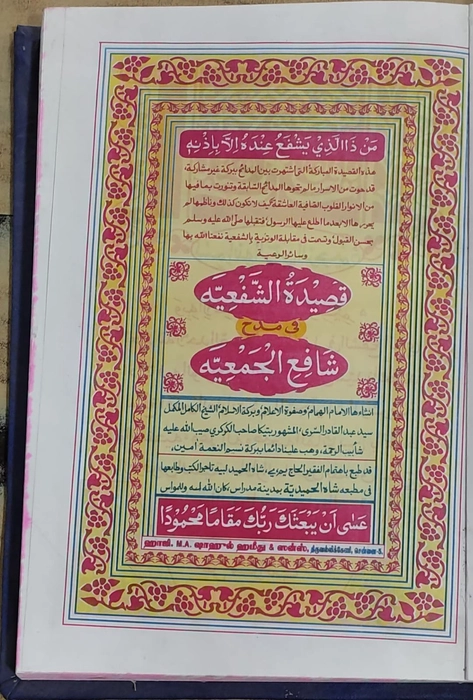 مَنْ ذَا الَّذِيْ يَشْفَعُ عِنْدَهُ اِلَّا بِاِذْنِهٖ
هذه القصيدة المباركة التى اشتهرت بين المدائح ببركة غير مشاركة،
قد حوت من الاسرار ما لم تحوها المدائح السابقة وتنورت بما فيها
من الانوار القلوب الصافية العاشقة كيف لا تكون كذلك وناظمها لم
يحررها الا بعد ما اطلع عليها الرسول فتقبلها صلى الله عليه وسلم
بحسن القبول وتسمت فى مقابلة الوترية بالشفعية نفعنا الله بها
وسائر الرعية
قَصِيْدَةُ الشَّفْعِيَّه
فى مدح
شَافِعِ الْجَمْعِيَّه
انشاءها الامام الهمام وصفوة الاعلام وبركة الاسلام الشيخ الكامل المكمل
سيد عبد القادر السرى، المشهور بتيكا صاحب الكركرى صب الله عليه
شآبيب الرحمة، وهب علينا دائما ببركة نسيم النعمة آمين،
قد طبع باهتمام الفقير الحاج شاه الحميد لبيه تاجر الكتب وطابعها
فى مطبعه شاه الحميديّة بمدينة مدراس كان الله له وللمواس
عَسٰى اَنْ يَبْعَثَكَ رَبُّكَ مَقَامًا مَّحْمُوْدًا
ஹாஜி. M.A. ஷாஹுல் ஹமீது & ஸன்ஸ், திருவல்லிக்கேணி, சென்னை-5.